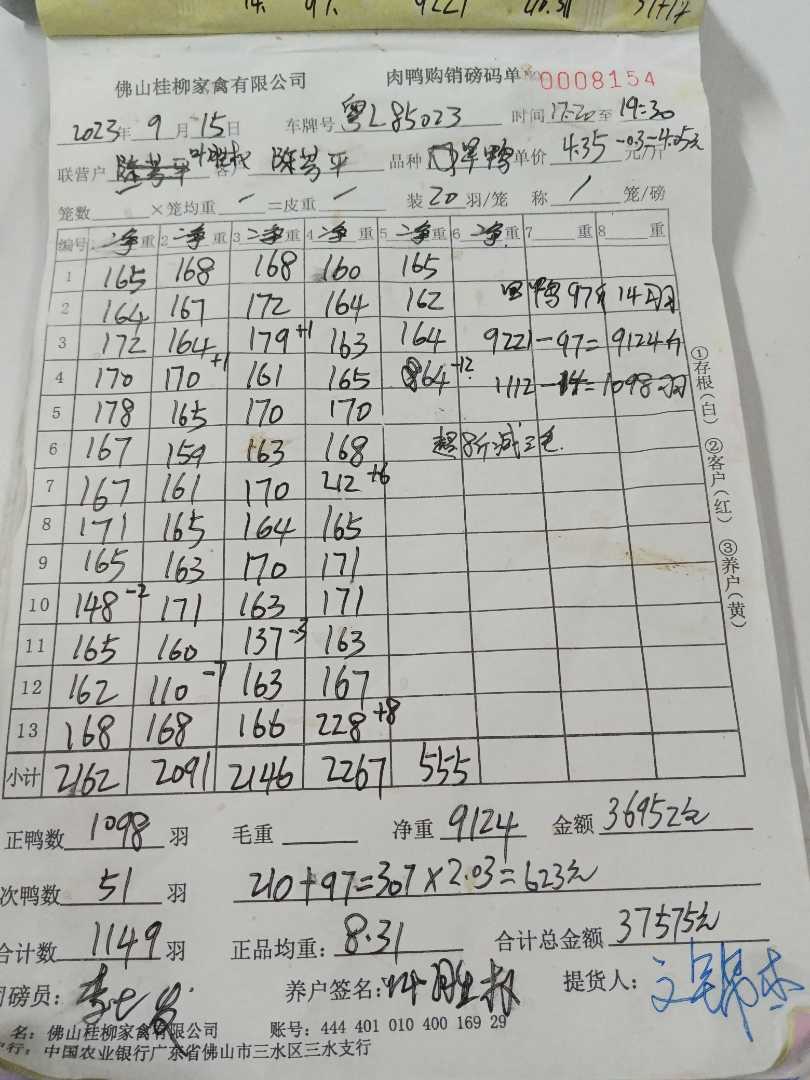 14. 97. 9221 40.511 51+17
佛山桂柳家禽有限公司 肉鸭购销磅码单 0008154
2023年 9月 15日 车牌号 粤L85023 时间 17:20至 19:30
联营户 陈芳平 叶胜权 客户 陈芳平 品种 旱鸭 单价 4.35-0.3=4.05元 元/斤
笼数 ×笼均重 一 =皮重 一 装 20 羽/笼 称 / 笼/磅
编号 1二净重 2二净重 3二净重 4二净重 5二净重 6二净重 7 重 8 重
1 165 168 168 160 165
2 164 167 172 164 162 鸭97斤14羽
3 172 164 179+1 163 164 9221-97=9124斤
4 170 170+1 161 165 64-12 1112-14=1098羽
5 178 165 170 170
6 167 159 163 168 超8斤减3毛.
7 167 161 170 212+6
8 171 165 164 165
9 165 163 170 171
10 148-2 171 163 171
11 165 160 137-3 163
12 162 110-7 163 167
13 168 168 166 228+8
小计 2162 2091 2146 2267 555
①存根(白) ②客户(红) ③养户(黄)
正鸭数 1098 羽 毛重 净重 9124 金额 36952元
次鸭数 51 羽 210+97=307×2.03=623元
合计数 1149 羽 正品均重: 8.31 合计总金额 37575元
司磅员: 养户签名: 叶胜权 提货人:
名: 佛山桂柳家禽有限公司 账号: 444 401 010 400 169 29
行: 中国农业银行广东省佛山市三水区三水支行